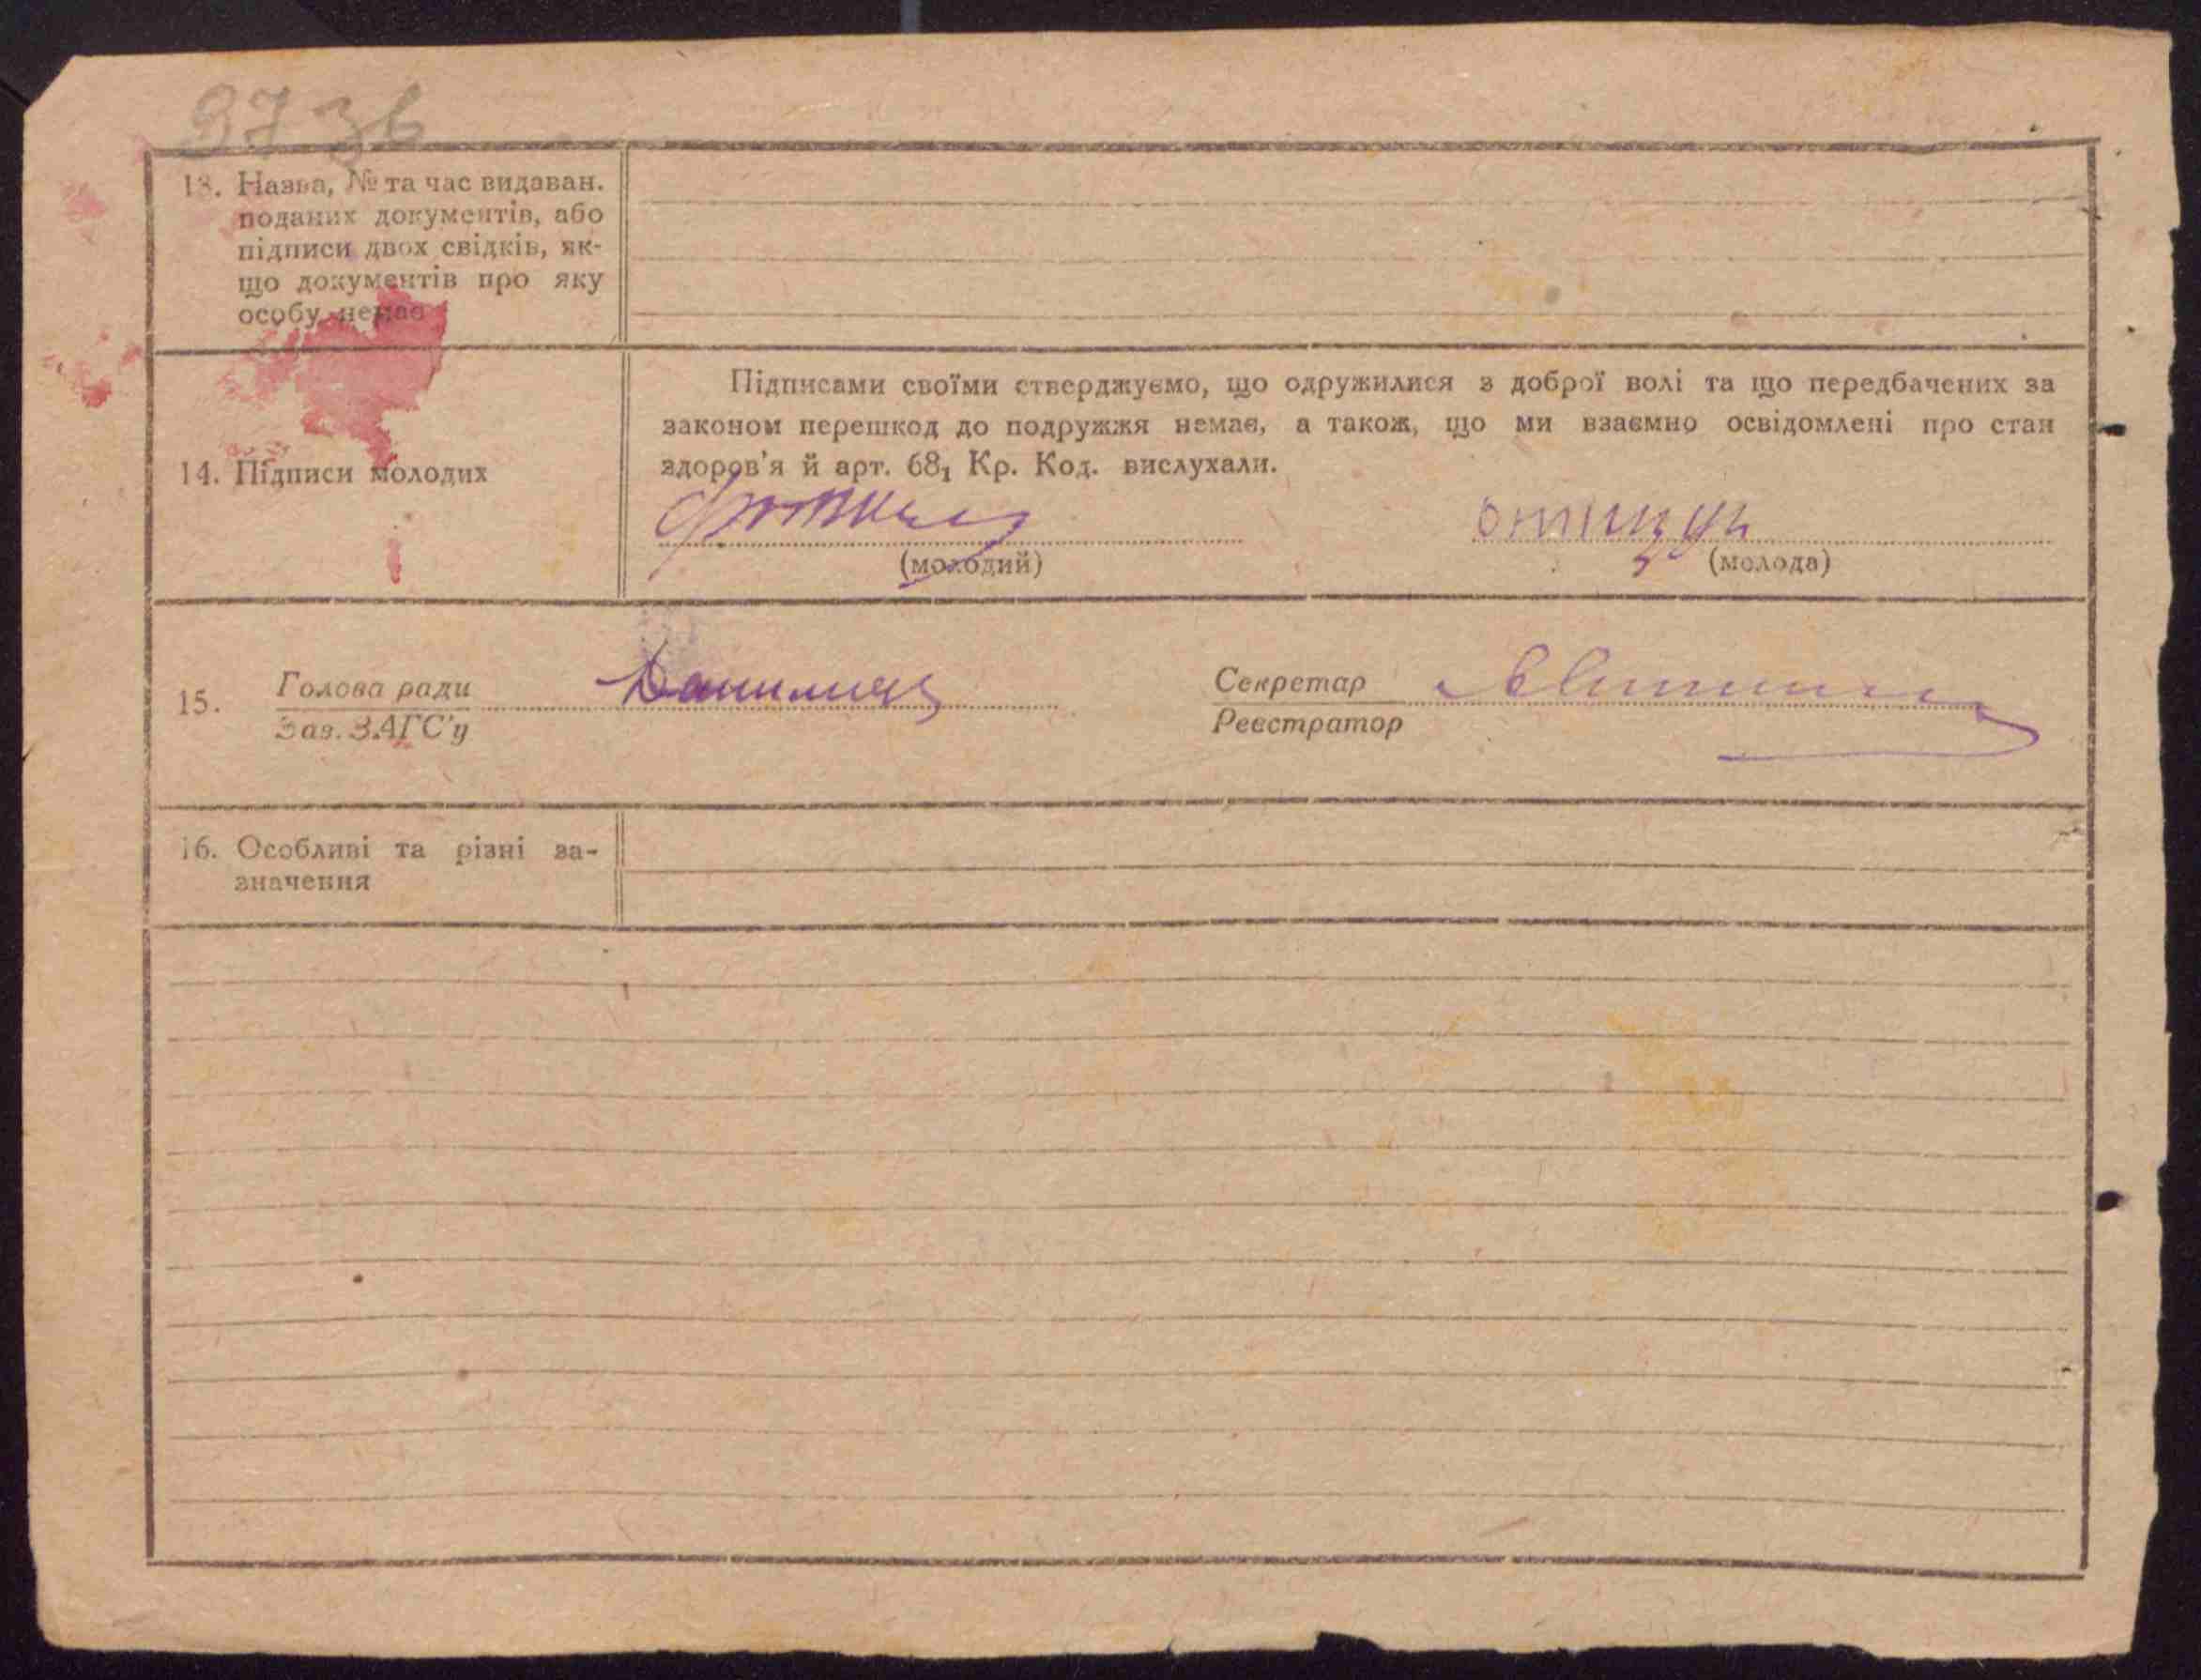 9736
13. Назва, № та час видаван.
поданих документів, або
підписи двох свідків, як-
що документів про яку
особу немає
Підписами своїми стверджуємо, що одружилися з доброї волі та що передбачених за
законом перешкод до подружжя немає, а також, що ми взаємно освідомлені про стан
здоров'я й арт. 68₁ Кр. Код. вислухали.
14. Підписи молодих
(молодий) (молода)
15. Голова ради Секретар
Зав. ЗАГС'у Реєстратор
16. Особливі та різні за-
значення